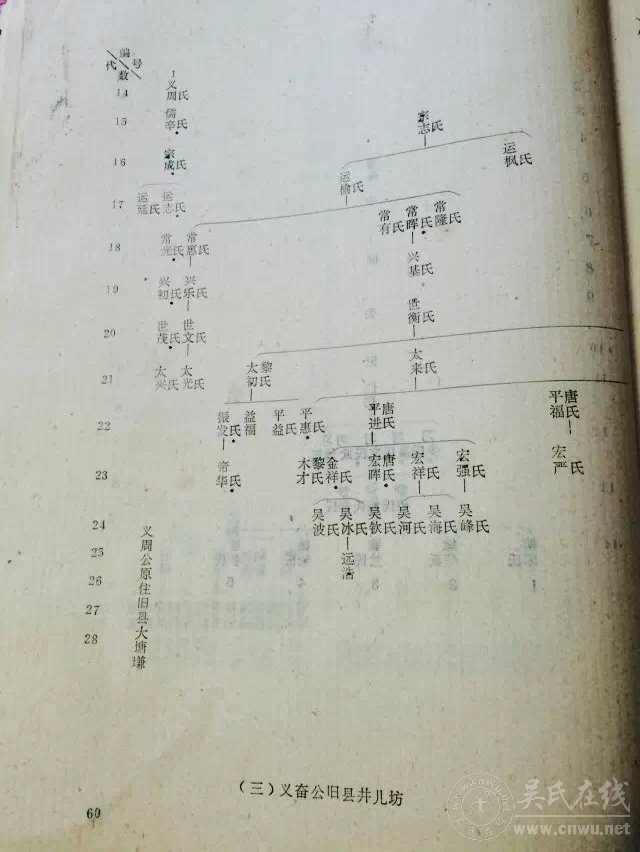 编号
代数
14 1 义周氏
15 儒辛氏 宗志氏
16 宗成氏 运榆氏 运枫氏
17 运廷氏 运志氏 常有氏 常晖氏 常隆氏
18 常光氏 常惠氏 兴基氏
19 兴初氏 兴乐氏 世衡氏
20 世茂氏 世文氏 太来氏
21 太兴氏 太光氏 太初黎氏
22 振发氏 益福 平益氏 平惠氏 平进唐氏 平福唐氏
23 帝华氏 木才黎氏 金祥氏 宏晖唐氏 宏祥氏 宏强氏 宏严氏
24 吴波氏 吴冰氏 吴钦氏 吴河氏 吴海氏 吴峰氏
25 远浩
26
27
28
义周公原住旧县大塘墘
(三)义奋公旧县井儿坊
60
吴氏在线
www.cnwu.net